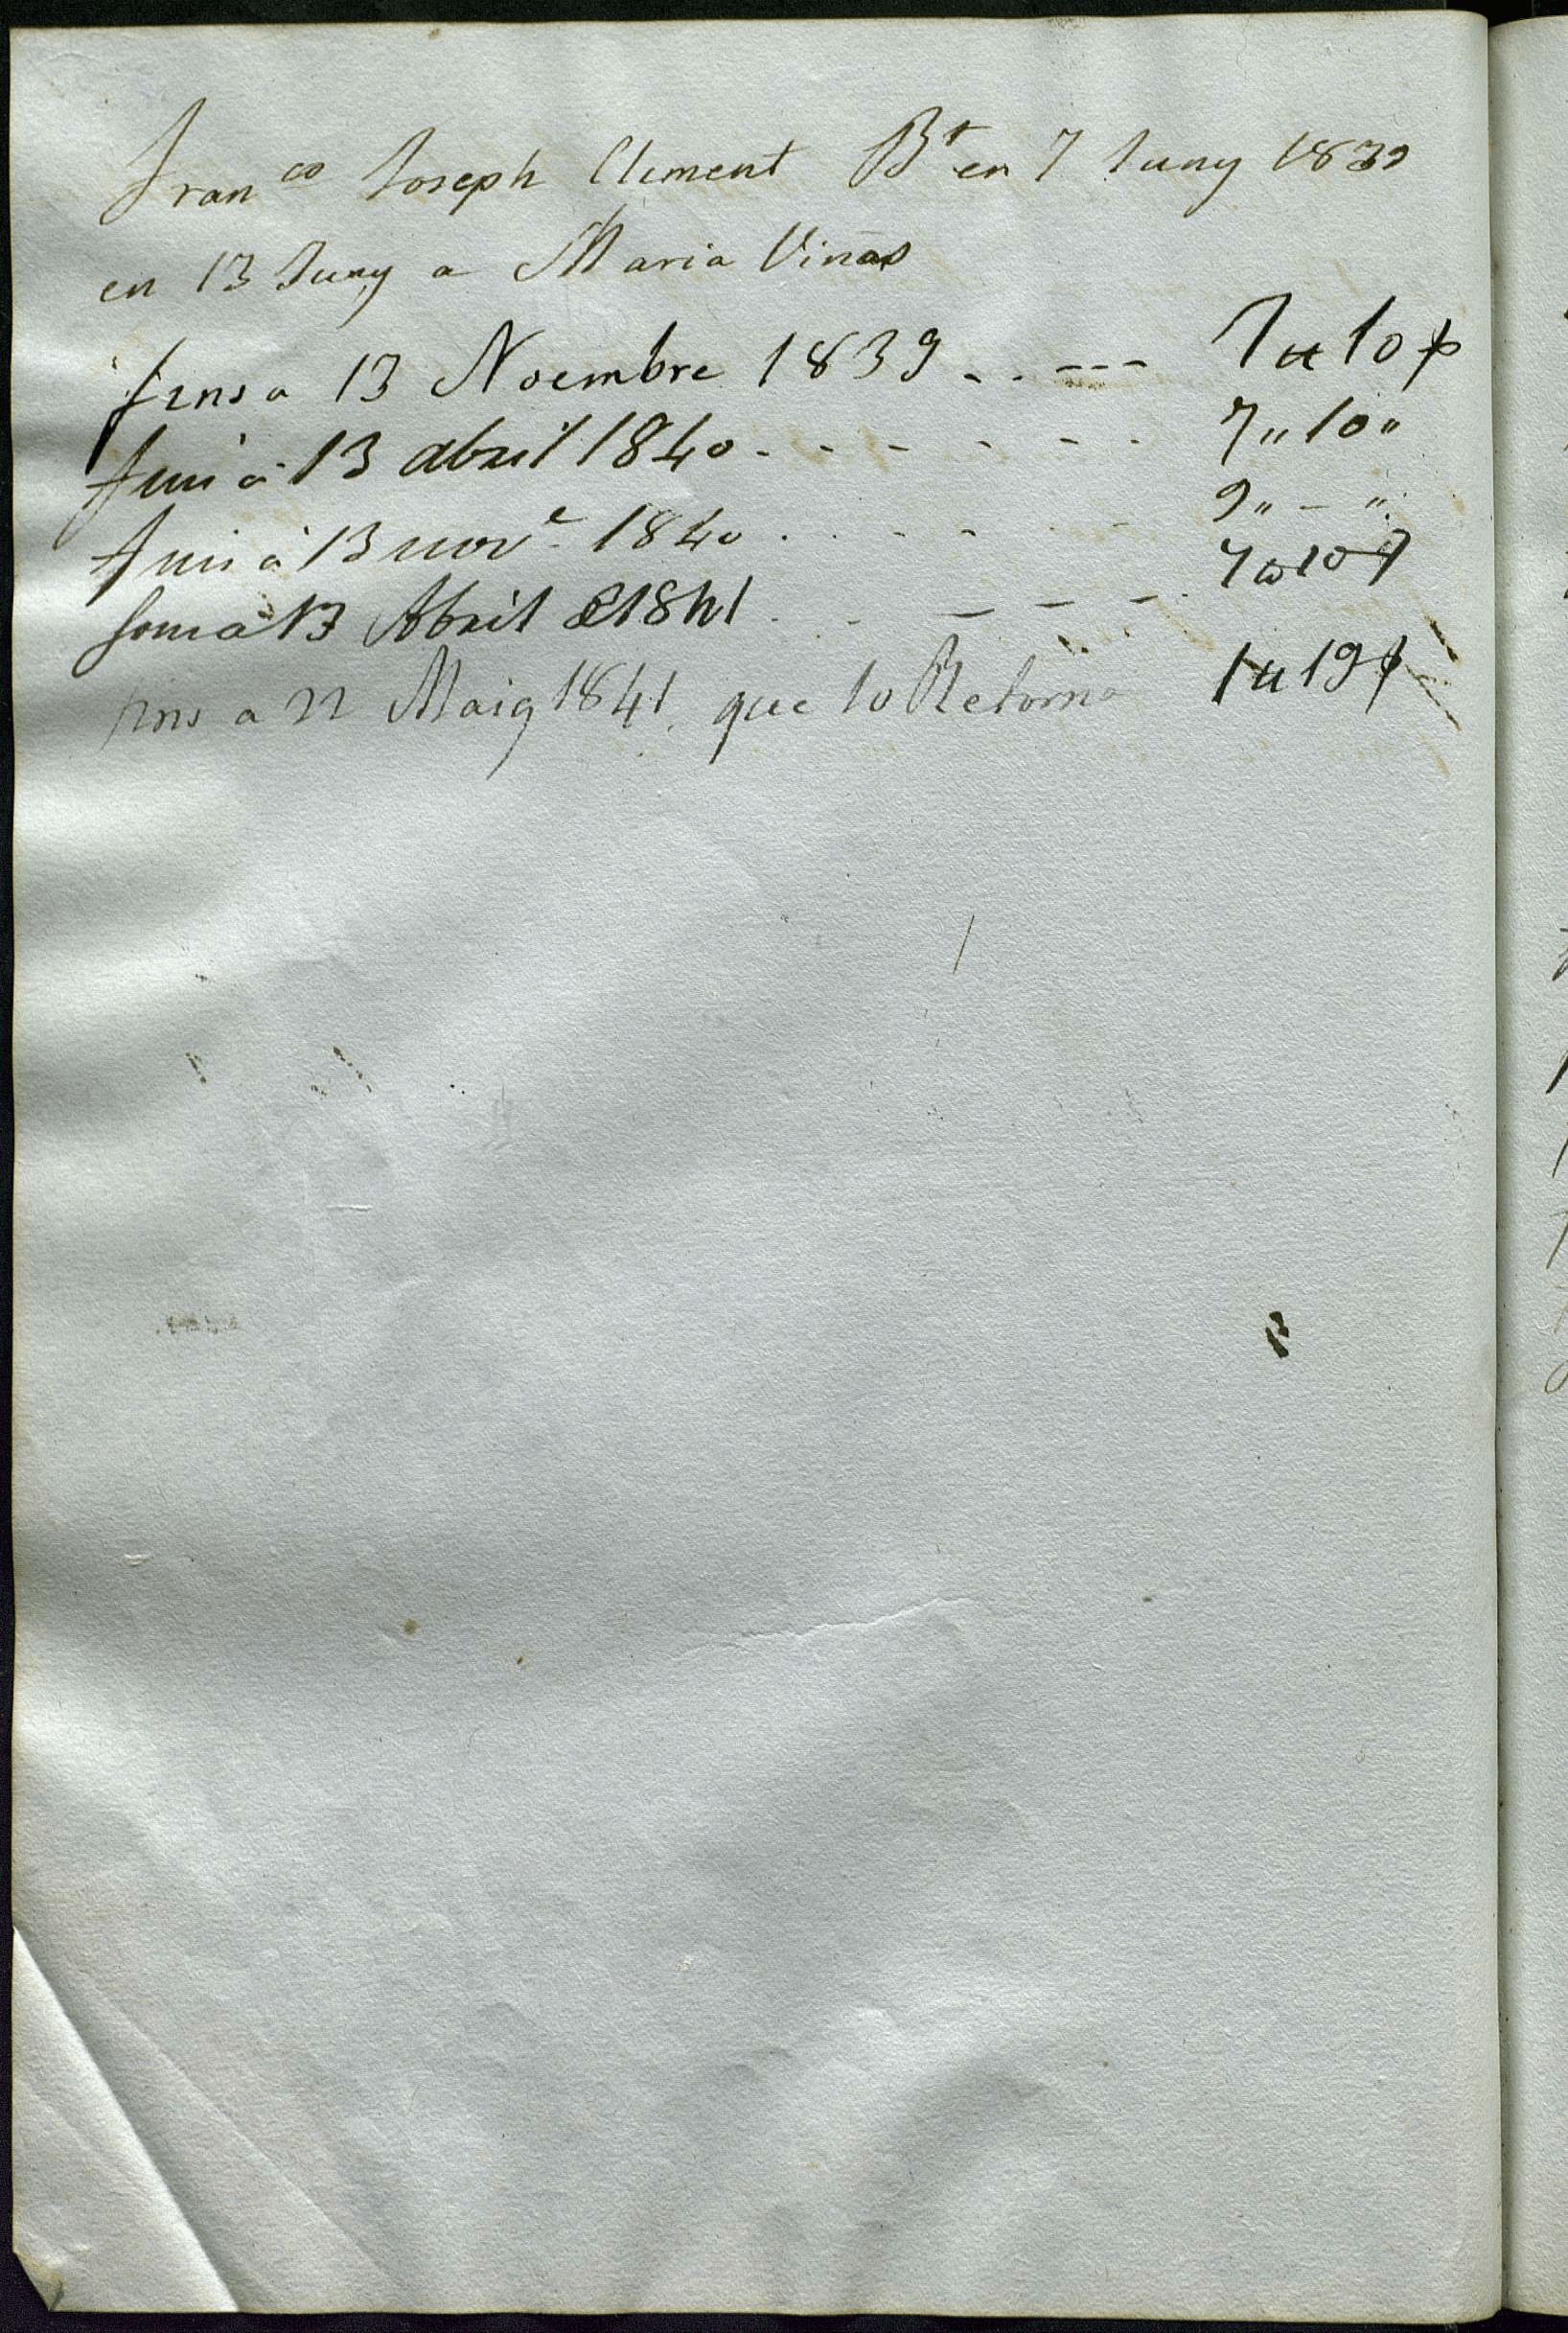 Fran.co Joseph Climent Bt en 7 Juny 1839
en 13 Juny a Maria Vinas
fins a 13 Noembre 1839 . . --- 7 ɫɫ 10 ƥ
fins á 13 abril 1840 - - - - - - 7 " 10 "
fins á 13 nov.e 1840 . . - - - 9 " - "
13 Abril 1841 . - - - - 7 10
fins a 22 Maig 1841, que lo Retorna 1 ɫɫ 19 ƥ